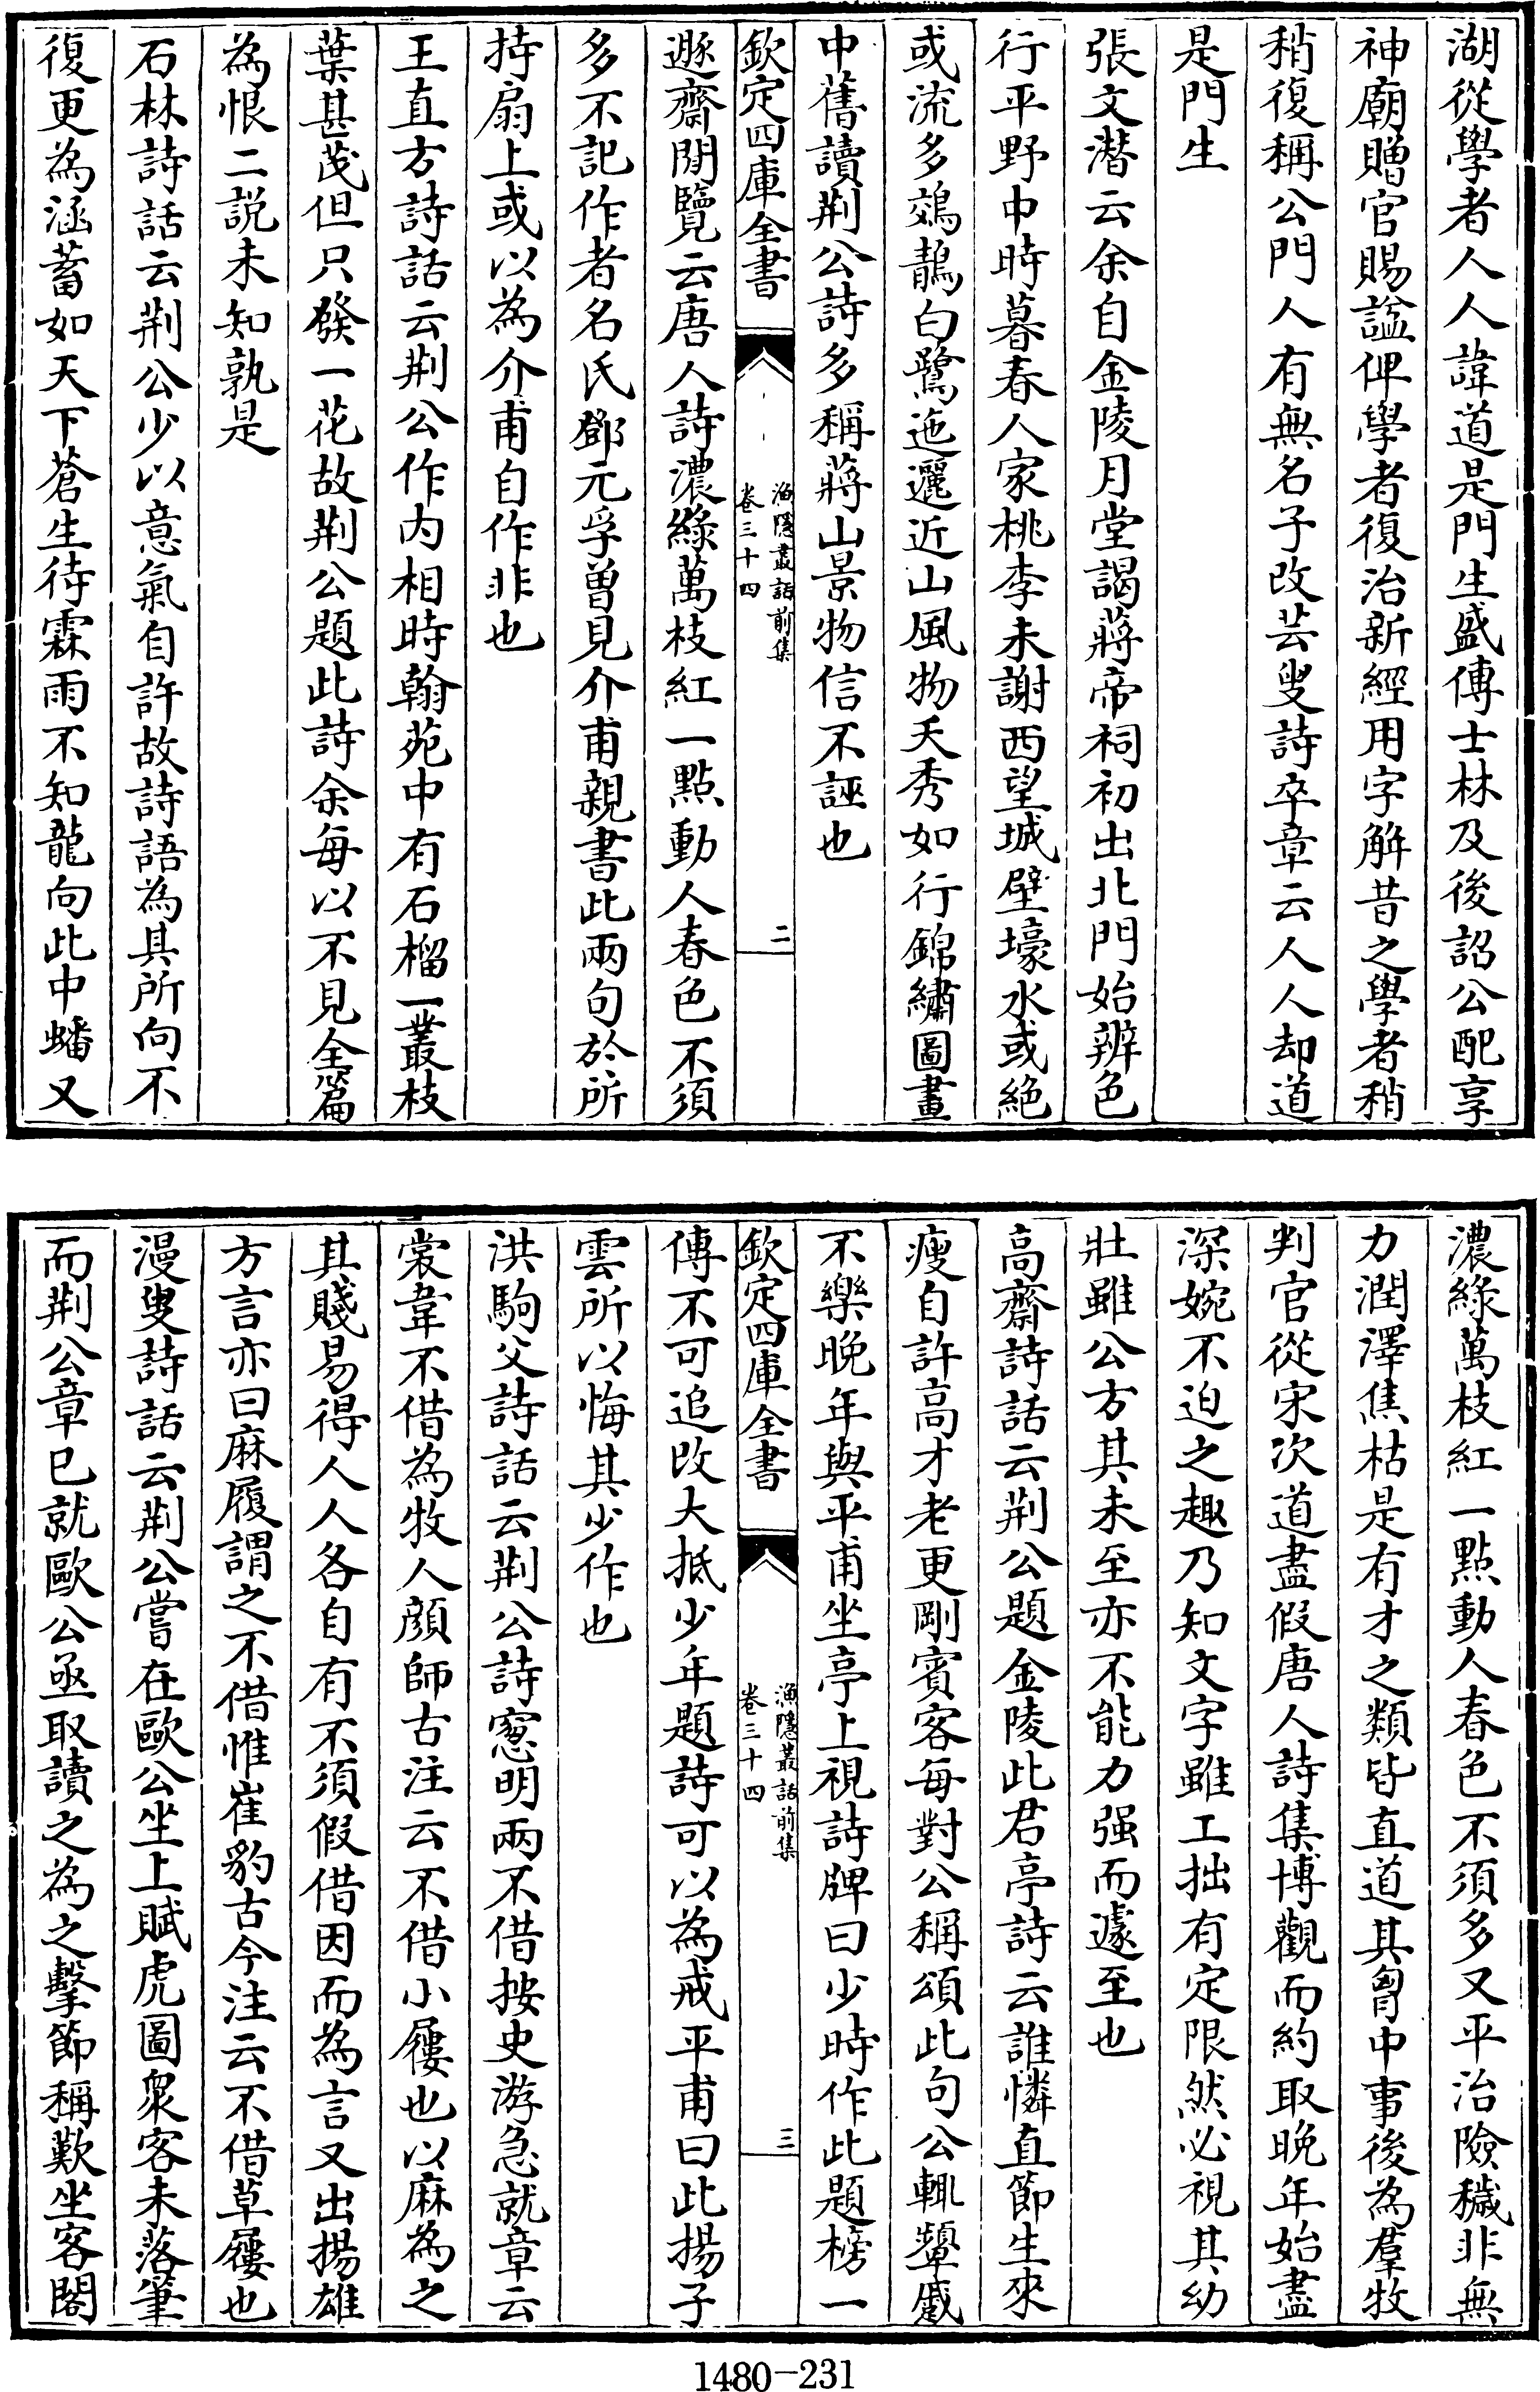 湖從學者人人諱道是門生盛傳士林及後詔公配享
神廟贈官賜諡俾學者復治新經用字解昔之學者稍
稍復稱公門人有無名子改芸叟詩卒章云人人却道
是門生
張文潛云余自金陵月堂謁蔣帝祠初出北門始辨色
行平野中時暮春人家桃李未謝西望城壁壕水或絕
或流多鵁鶄白鷺迤邐近山風物夭秀如行錦繡圖畫
中舊讀荆公詩多稱蔣山景物信不誣也
欽定四庫全書
漁隱叢話前集
卷三十四
二
遯齋閒覽云唐人詩濃綠萬枝紅一點動人春色不須
多不記作者名氏鄧元孚曾見介甫親書此兩句於所
持扇上或以為介甫自作非也
王直方詩話云荆公作内相時翰苑中有石榴一叢枝
葉甚茂但只發一花故荆公題此詩余每以不見全篇
為恨二說未知孰是
石林詩話云荆公少以意氣自許故詩語為其所向不
復更為涵蓄如天下蒼生待霖雨不知龍向此中蟠又
濃綠萬枝紅一點動人春色不須多又平治險穢非無
力潤澤焦枯是有才之類皆直道其胷中事後為羣牧
判官從宋次道盡假唐人詩集博觀而約取晚年始盡
深婉不迫之趣乃知文字雖工拙有定限然必視其幼
壯雖公方其未至亦不能力强而遽至也
高齋詩話云荆公題金陵此君亭詩云誰憐直節生來
瘦自許高才老更剛賓客每對公稱頌此句公輒顰蹙
不樂晚年與平甫坐亭上視詩牌曰少時作此題榜一
欽定四庫全書
漁隱叢話前集
卷三十四
三
傳不可追改大抵少年題詩可以為戒平甫曰此揚子
雲所以悔其少作也
洪駒父詩話云荆公詩窻明兩不借按史游急就章云
裳韋不借為牧人顔師古注云不借小屨也以麻為之
其賤易得人人各自有不須假借因而為言又出揚雄
方言亦曰麻履謂之不借惟崔豹古今注云不借草屨也
漫叟詩話云荆公嘗在歐公坐上賦虎圖衆客未落筆
而荆公章已就歐公亟取讀之為之擊節稱歎坐客閣
1480-231